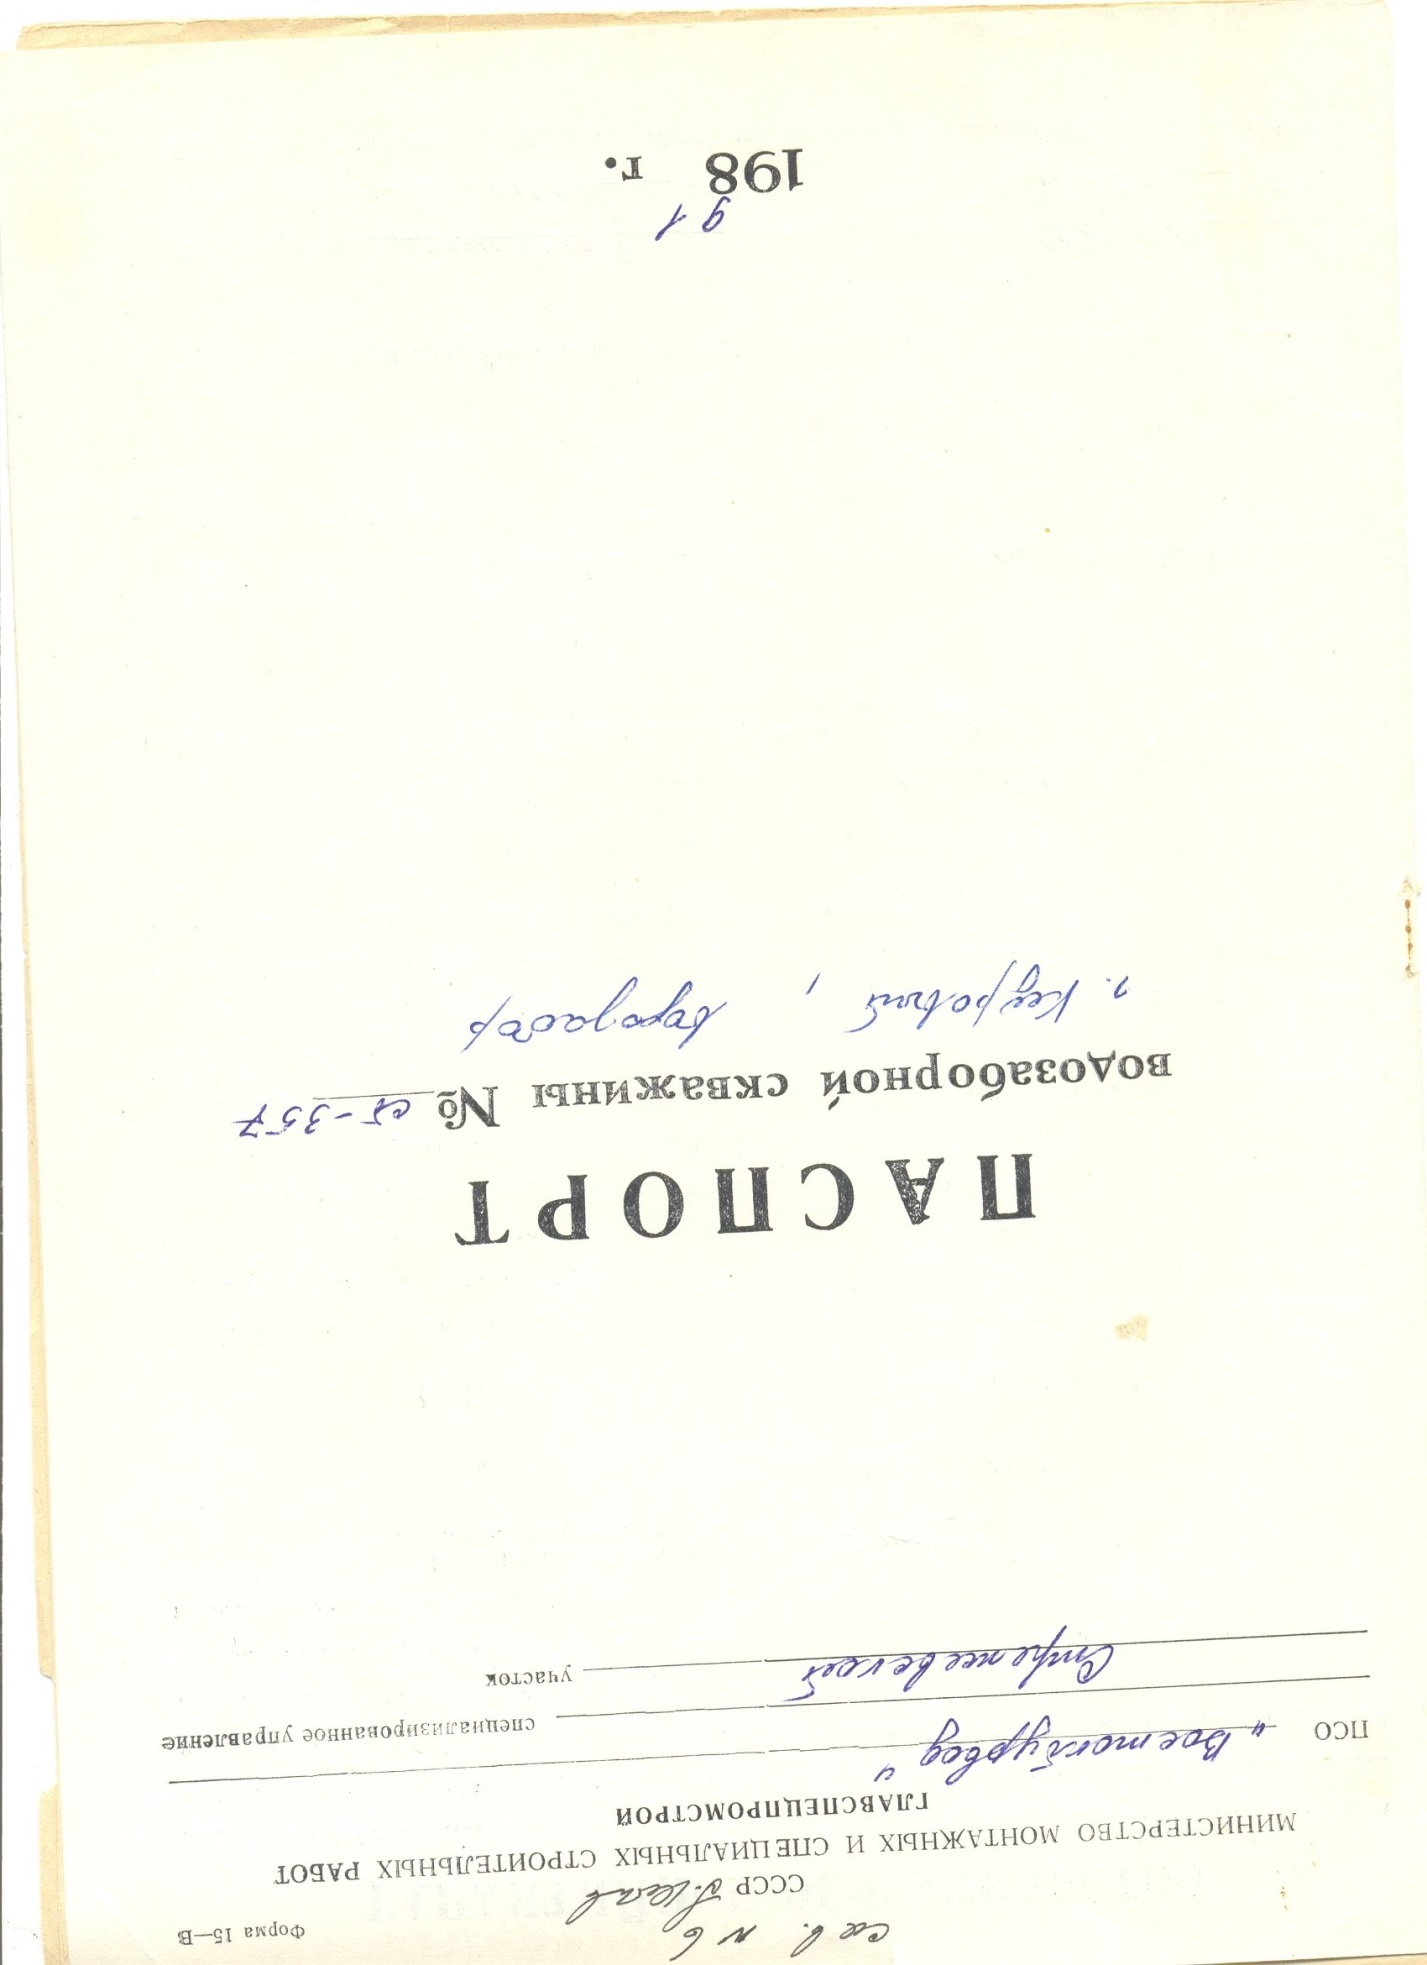 Форма 15—В
скв. № 6
СССР
МИНИСТЕРСТВО МОНТАЖНЫХ И СПЕЦИАЛЬНЫХ СТРОИТЕЛЬНЫХ РАБОТ
ГЛАВСПЕЦПРОМСТРОЙ
ПСО "Востокбурвод"
специализированное управление
Стрежевской участок
ПАСПОРТ
водозаборной скважины № СТ-357
г. Кедровый, водозабор
198 г.
91